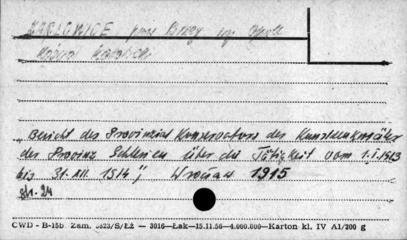 KARŁOWICE pow. Brzeg woj. Opole
Kościół Katolicki
"Bericht des Provinzial Konservators der Kunstdenkmäler
der Provinz Schlesien über die Tätigkeit vom 1.I.1913
bis 31.XII.1914", Wrocław 1915
str. 24
CWD - B-15b. Zam. 5523/S/ŁŻ — 3016—Łak—15.11.56—4.000.000—Karton kl. IV A1/200 g